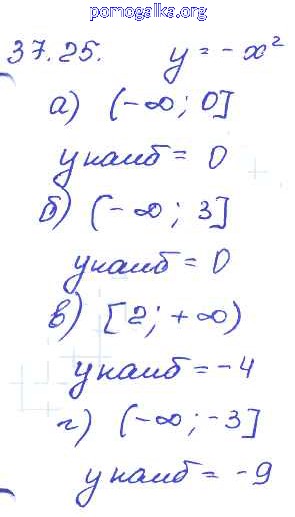 pomogalka.org
37.25. y = -x²
а) (-∞; 0]
y наиб = 0
б) (-∞; 3]
y наиб = 0
в) [2; +∞)
y наиб = -4
г) (-∞; -3]
y наиб = -9